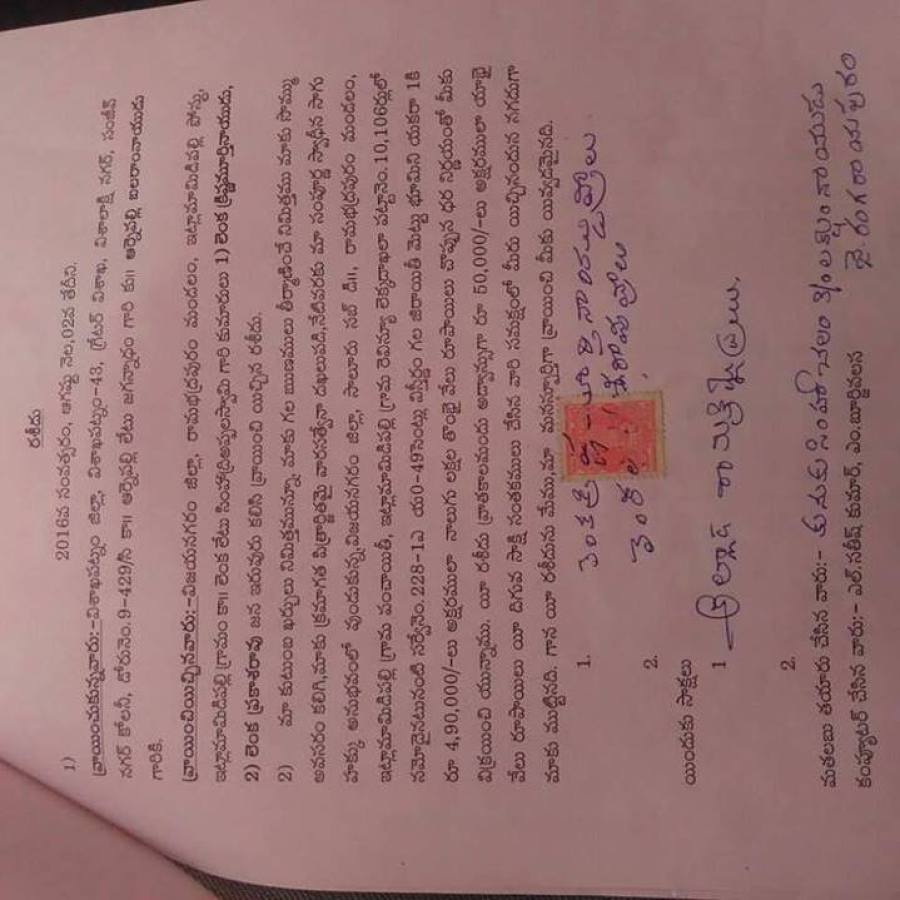 రశీదు
1) 2016వ సంవత్సరం, ఆగష్టు నెల,02వ తేదీని.
వ్రాయించుకున్నవారు:-విశాఖపట్నం జిల్లా, విశాఖపట్నం-43, గ్రేటర్ విశాఖ, విశాలాక్షి నగర్, సంజీవ్
నగర్ కోలనీ, డోరునెం.9-429/సి కా॥ ఆర్నెపల్లి లేటు జగన్నాధం గారి కు॥ ఆర్నెపల్లి బలరాంనాయుడు
గారికి.
వ్రాయించియిచ్చినవారు:-విజయనగరం జిల్లా, రామభద్రపురం మండలం, ఇట్లామామిడిపల్లి పోస్టు,
ఇట్లామామిడిపల్లి గ్రామం కా॥ లెంక లేటు సింహాద్రిఅప్పలస్వామి గారి కుమారులు 1) లెంక క్రిష్ణమూర్తినాయుడు,
2) లెంక ప్రకాశరావు జన ఇరువురు కలిసి వ్రాయించి యిచ్చిన రశీదు.
2) మా కుటుంబ ఖర్చులు నిమిత్తమున్నూ మాకు గల ఋణములు తీర్చాణించే నిమిత్తము మాకు సొమ్ము
అవసరం కలిగి,మాకు క్రమాగత పిత్రార్జితమై వారసత్వేనా దఖలుపడి,నేటివరకు మా సంపూర్ణ స్వాధీన సాగు
హక్కు అనుభవంలో వుండుకున్న,విజయనగరం జిల్లా, సాలూరు సబ్ డి॥, రామభద్రపురం మండలం,
ఇట్లామామిడిపల్లి గ్రామ పంచాయితీ, ఇట్లామామిడిపల్లి గ్రామ రెవిన్యూ లెక్కదాఖలా పట్టానెం.10,106ర్లులో
నమోదైనటువంటి సర్వేనెం.228-1ఎ య0-49సెంట్లు విస్తీర్ణం గల జిరాయితీ మెట్టు భూమిని యకరా 1కి
రూ 4,90,000/-లు అక్షరములా నాలుగు లక్షల తొంభై వేలు రూపాయిలు చొప్పున ధర నిర్ణయంతో మీకు
విక్రయించి యున్నాము. యీ రశీదు వ్రాతకాలమందు అడ్వాన్సుగా రూ 50,000/-లు అక్షరములా యాభై
వేలు రూపాయిలు యీ దిగువ సాక్షి సంతకములు చేసిన వారి సమక్షంలో మీరు యిచ్చినందున నగదుగా
మాకు ముట్టినది. గాన యీ రశీదును మేము,మా మనస్ఫూర్తిగా వ్రాయించి మీకు యివ్వడమైనది.
1. లెంక క్రిష్ణమూర్తినాయుడు వ్రాలు
2. లెంక
యిందుకు సాక్షులు
1
2.
మతలబు తయారు చేసిన వారు:-
కంప్యూటర్ చేసిన వారు:- ఎల్.సతీష్ కుమార్, ఎం.బూర్జివలస